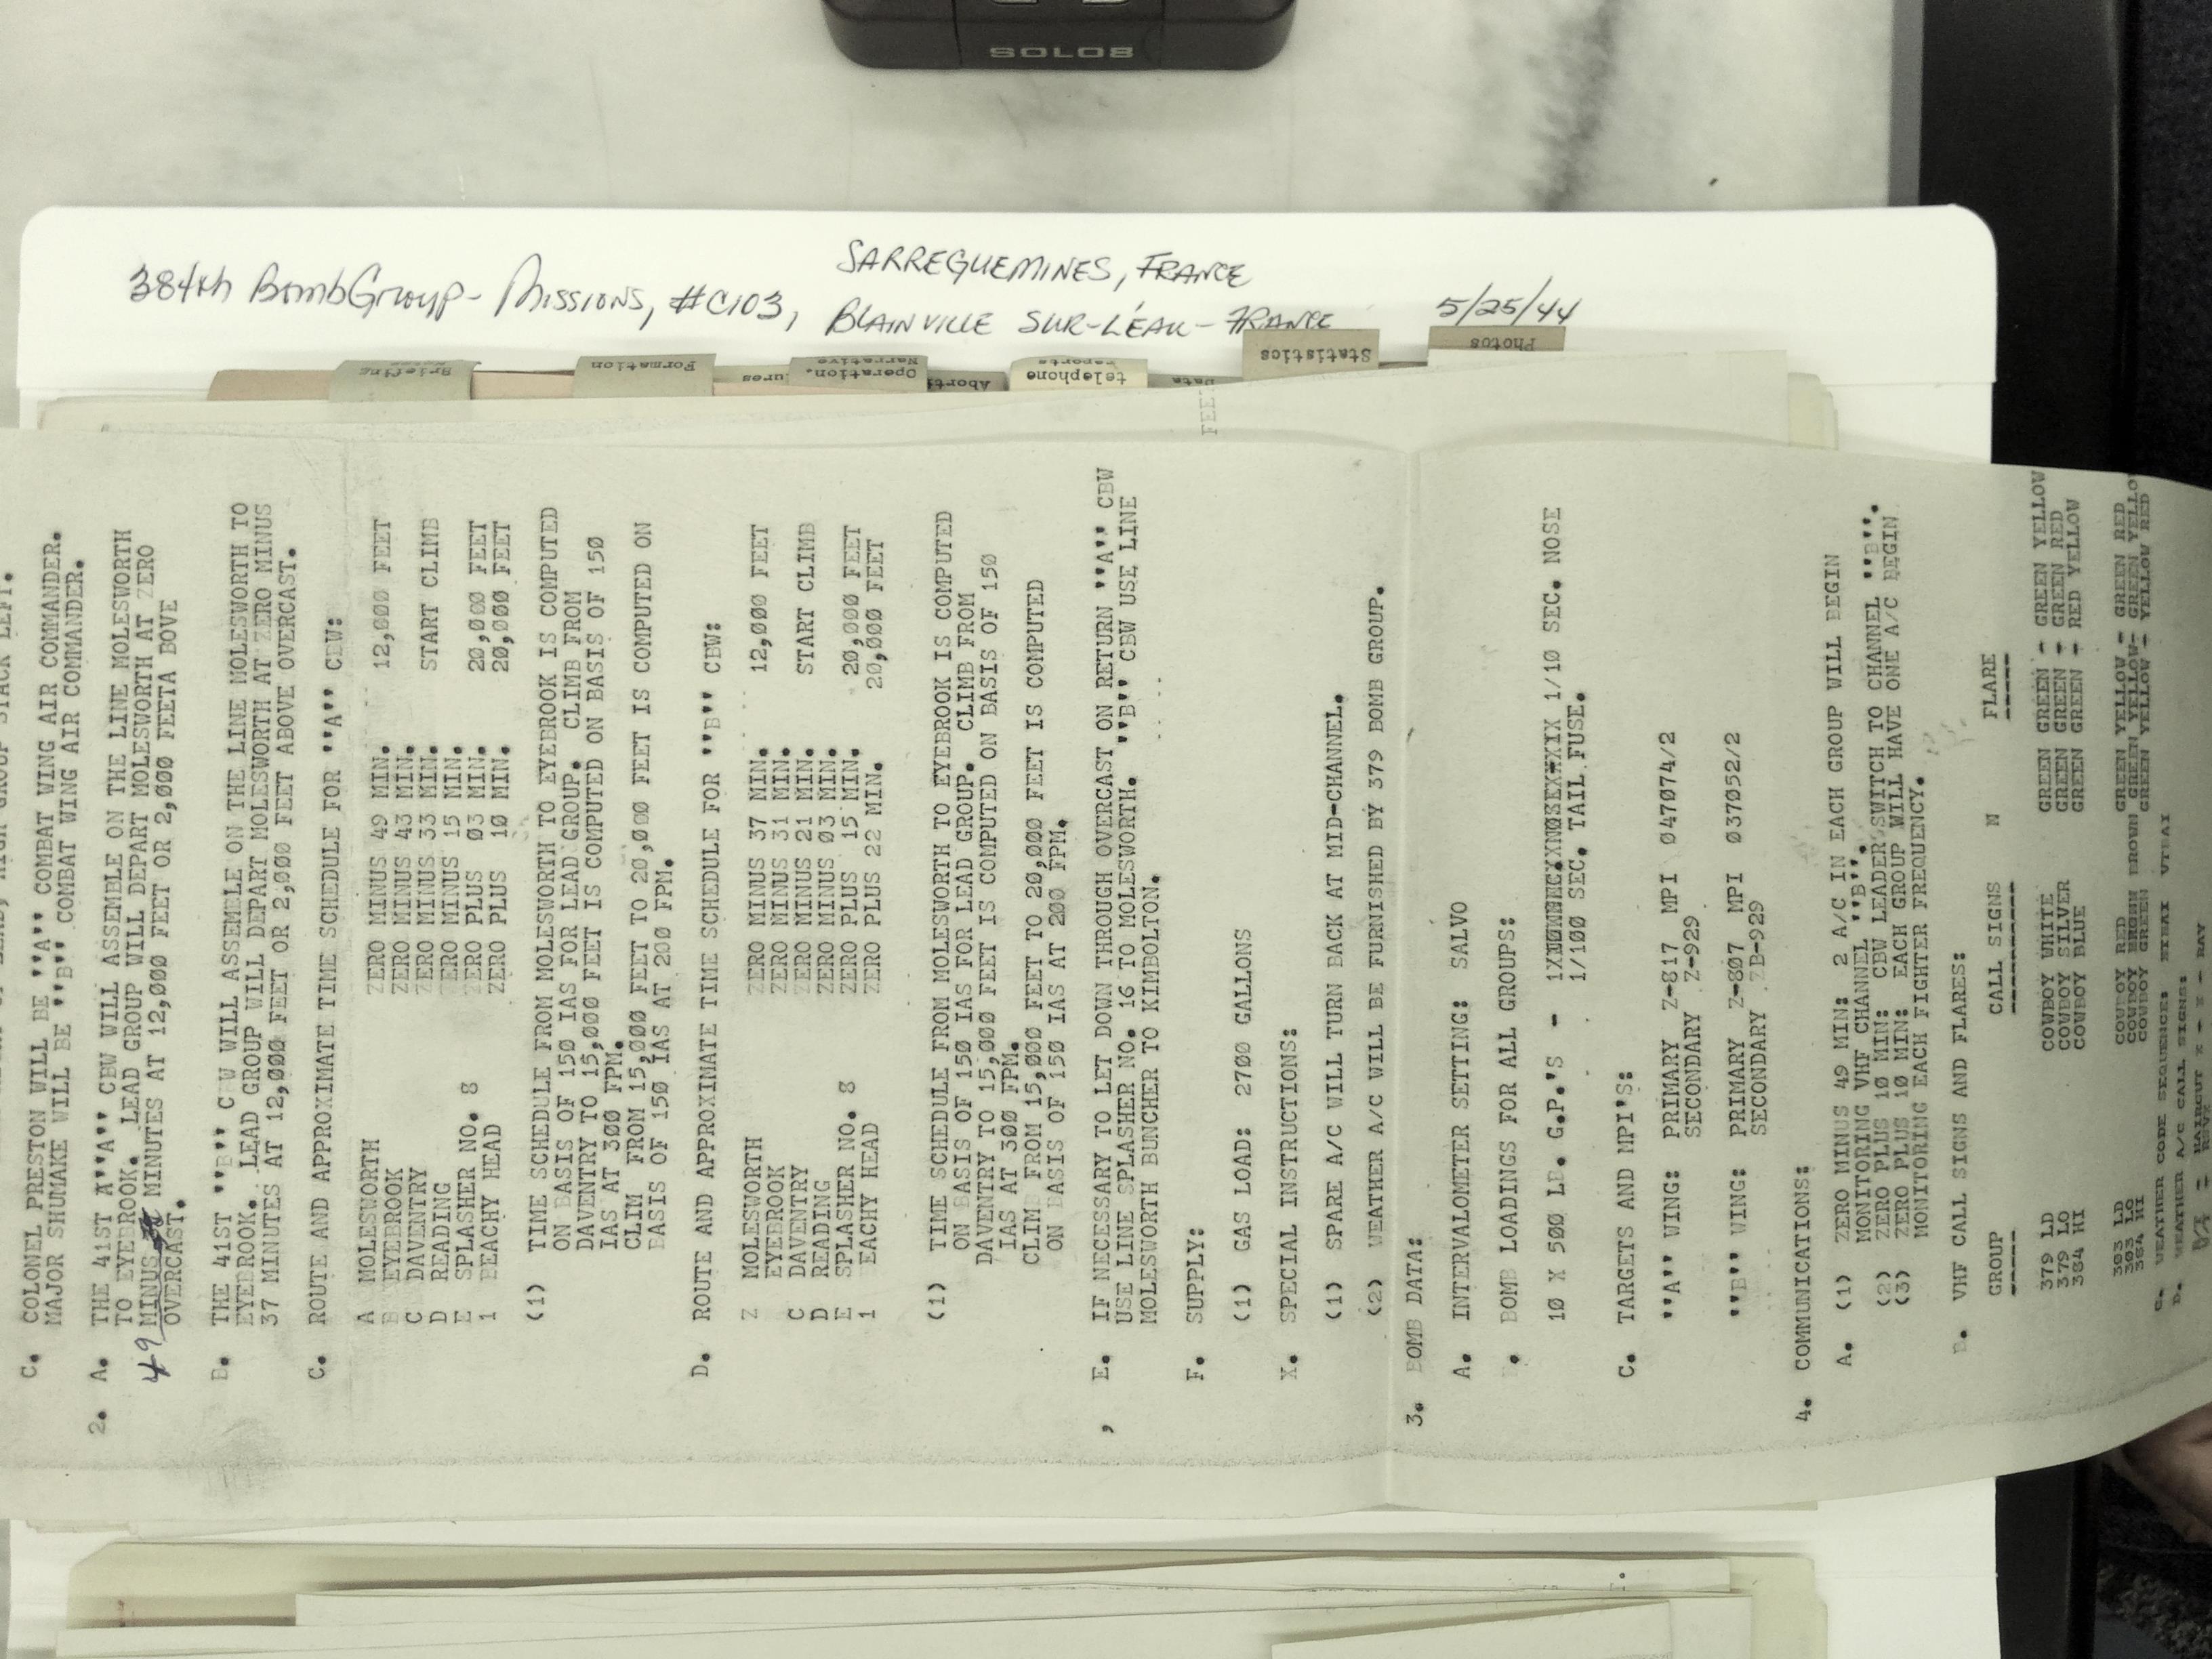 SOLO8
SARREGUEMINES, FRANCE
384th BombGroup - Missions, #C103, BLAINVILLE SUR-L'EAU - FRANCE 5/25/44
Briefing
Formation
Operation.
Narrative
Aborts
telephone
reports
Data
Statistics
Photos
FEET
C. COLONEL PRESTON WILL BE ''A'' COMBAT WING AIR COMMANDER.
MAJOR SHUMAKE WILL BE ''B'' COMBAT WING AIR COMMANDER.
2. A. THE 41ST A''A'' CBW WILL ASSEMBLE ON THE LINE MOLESWORTH
TO EYEBROOK. LEAD GROUP WILL DEPART MOLESWORTH AT ZERO
49 MINUS MINUTES AT 12,000 FEET OR 2,000 FEETA BOVE
OVERCAST.
B. THE 41ST ''B'' C W WILL ASSEMBLE ON THE LINE MOLESWORTH TO
EYEBROOK. LEAD GROUP WILL DEPART MOLESWORTH AT ZERO MINUS
37 MINUTES AT 12,000 FEET OR 2,000 FEET ABOVE OVERCAST.
C. ROUTE AND APPROXIMATE TIME SCHEDULE FOR ''A'' CBW:
A MOLESWORTH ZERO MINUS 49 MIN. 12,000 FEET
B EYEBROOK ZERO MINUS 43 MIN.
C DAVENTRY ZERO MINUS 33 MIN. START CLIMB
D READING ZERO MINUS 15 MIN.
E SPLASHER NO. 8 ZERO PLUS 03 MIN. 20,000 FEET
1 BEACHY HEAD ZERO PLUS 10 MIN. 20,000 FEET
(1) TIME SCHEDULE FROM MOLESWORTH TO EYEBROOK IS COMPUTED
ON BASIS OF 150 IAS FOR LEAD GROUP. CLIMB FROM
DAVENTRY TO 15,000 FEET IS COMPUTED ON BASIS OF 150
IAS AT 300 FPM.
CLIM FROM 15,000 FEET TO 20,000 FEET IS COMPUTED ON
BASIS OF 150 IAS AT 200 FPM.
D. ROUTE AND APPROXIMATE TIME SCHEDULE FOR ''B'' CBW:
Z MOLESWORTH ZERO MINUS 37 MIN. 12,000 FEET
EYEBROOK ZERO MINUS 31 MIN.
C DAVENTRY ZERO MINUS 21 MIN. START CLIMB
D READING ZERO MINUS 03 MIN.
E SPLASHER NO. 8 ZERO PLUS 15 MIN. 20,000 FEET
1 EACHY HEAD ZERO PLUS 22 MIN. 20,000 FEET
(1) TIME SCHEDULE FROM MOLESWORTH TO EYEBROOK IS COMPUTED
ON BASIS OF 150 IAS FOR LEAD GROUP. CLIMB FROM
DAVENTRY TO 15,000 FEET IS COMPUTED ON BASIS OF 150
IAS AT 300 FPM.
CLIM FROM 15,000 FEET TO 20,000 FEET IS COMPUTED
ON BASIS OF 150 IAS AT 200 FPM.
, E. IF NECESSARY TO LET DOWN THROUGH OVERCAST ON RETURN ''A'' CBW
USE LINE SPLASHER NO. 16 TO MOLESWORTH. ''B'' CBW USE LINE
MOLESWORTH BUNCHER TO KIMBOLTON.
F. SUPPLY:
(1) GAS LOAD: 2700 GALLONS
X. SPECIAL INSTRUCTIONS:
(1) SPARE A/C WILL TURN BACK AT MID-CHANNEL.
(2) WEATHER A/C WILL BE FURNISHED BY 379 BOMB GROUP.
3. BOMB DATA:
A. INTERVALOMETER SETTING: SALVO
B. BOMB LOADINGS FOR ALL GROUPS:
10 X 500 LB. G.P.'S - 1/10 SEC. NOSE
1/100 SEC. TAIL FUSE.
C. TARGETS AND MPI'S:
''A'' WING: PRIMARY Z-817 MPI 047074/2
SECONDARY Z-929
''B'' WING: PRIMARY Z-807 MPI 037052/2
SECONDARY ZB-929
4. COMMUNICATIONS:
A. (1) ZERO MINUS 49 MIN: 2 A/C IN EACH GROUP WILL BEGIN
MONITORING VHF CHANNEL ''B''.
(2) ZERO PLUS 10 MIN: CBW LEADER SWITCH TO CHANNEL ''B''.
(3) ZERO PLUS 10 MIN: EACH GROUP WILL HAVE ONE A/C BEGIN
MONITORING EACH FIGHTER FREQUENCY.
B. VHF CALL SIGNS AND FLARES:
GROUP CALL SIGNS N FLARE
379 LD COWBOY WHITE GREEN GREEN - GREEN YELLOW
379 LO COWBOY SILVER GREEN GREEN - GREEN RED
384 HI COWBOY BLUE GREEN GREEN - RED YELLOW
303 LD COWBOY RED GREEN YELLOW - GREEN RED
303 LO COWBOY BROWN BROWN GREEN YELLOW - GREEN YELLO
384 HI COWBOY GREEN GREEN YELLOW - YELLOW RED
C. WEATHER CODE SEQUENCE:
D. WEATHER A/C CALL SIGNS: